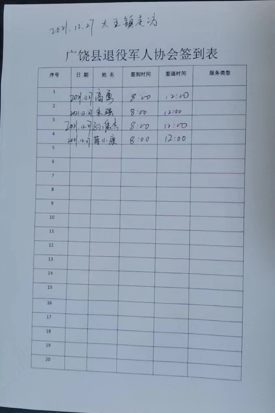 2021.12.27 大王镇走访
广饶县退役军人协会签到表
序号 日期 姓名 签到时间 签退时间 服务类型
1 8:00 12:00
2 8:00 12:00
3 8:00 12:00
4 8:00 12:00
5
6
7
8
9
10
11
12
13
14
15
16
17
18
19
20